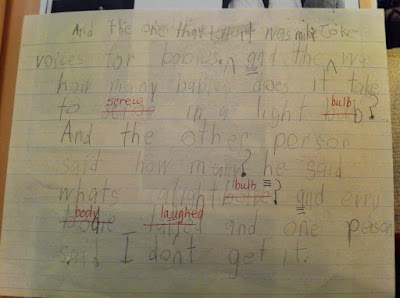 And the one that was
voices for babies. ^ and the ^ was
how many babies does it take
to screw in a light bulb ?
And the other person
said how many? he said
whats alight bulb ? and evry
body laughed and one person
said I dont get it.